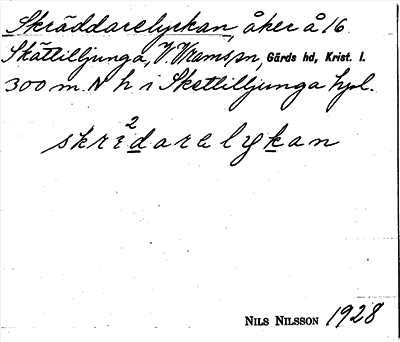 Skräddarelyckan, åker å 16
Skättilljunga, V. Vrams sn, Gärds hd, Krist. l.
300 m. N h i Sketlilljunga hpl.
2
skrädarelykan
NILS NILSSON 1928